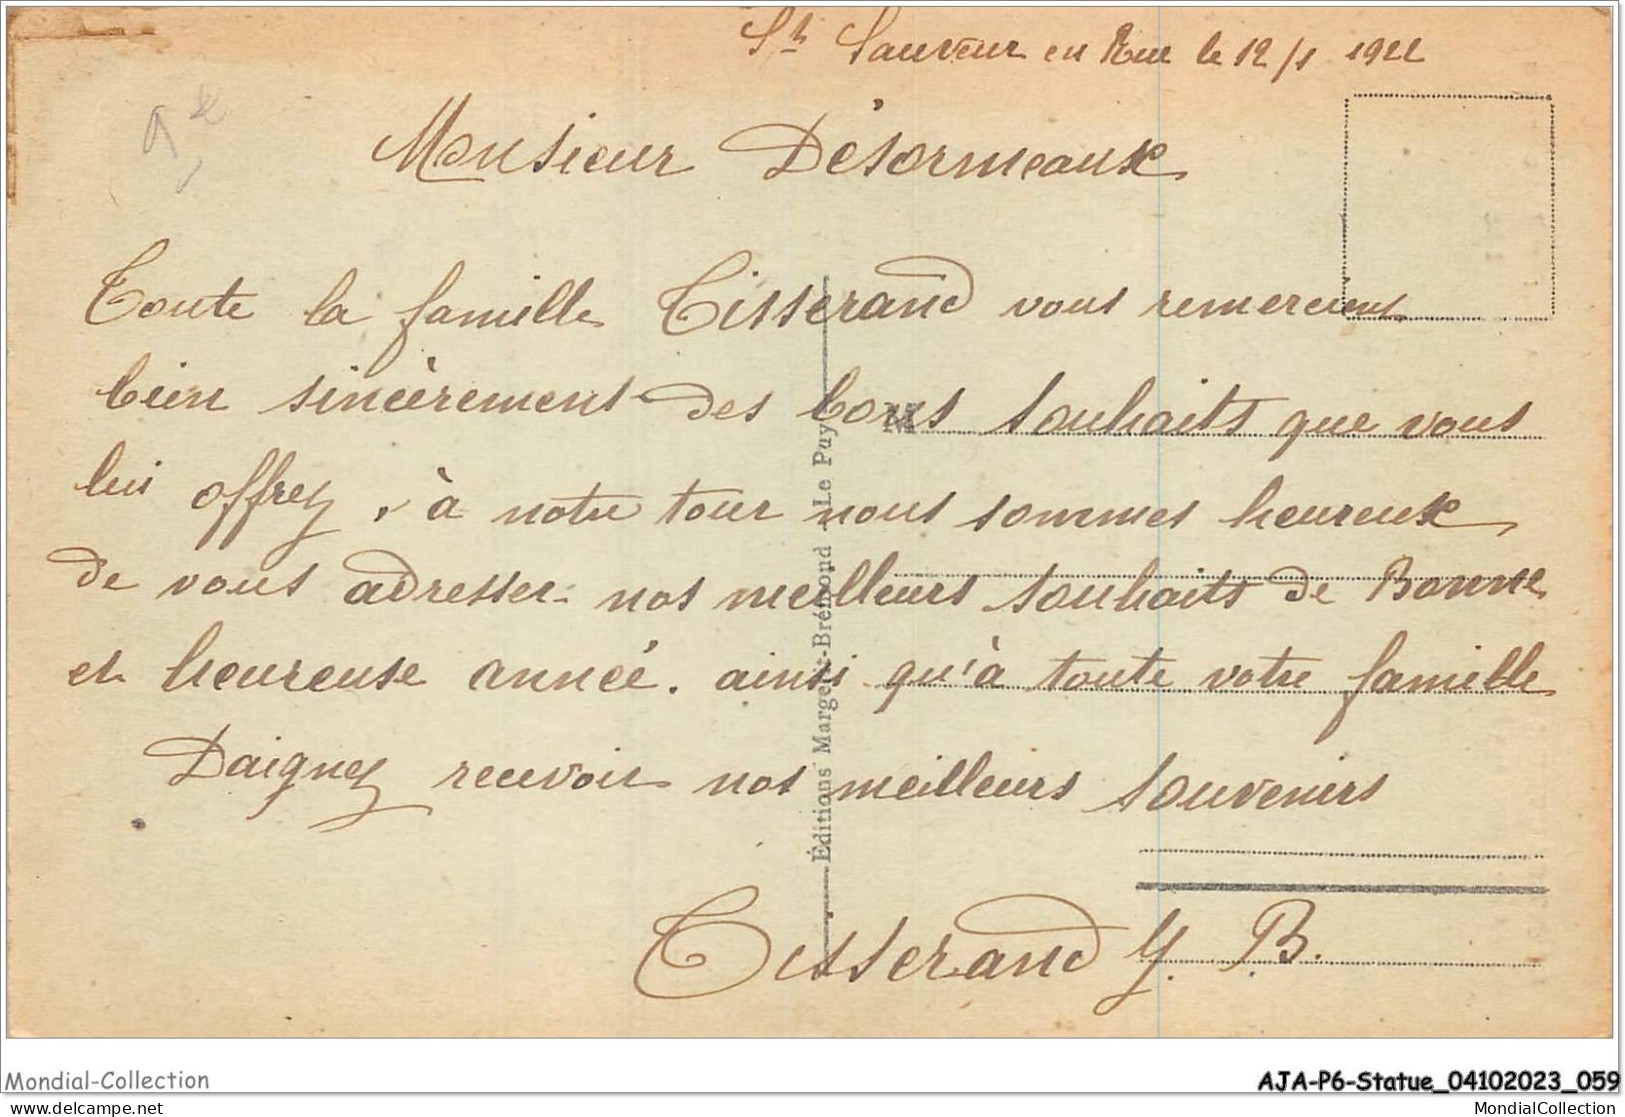 St Sauveur en Rue le 12/1 1922
Monsieur Désormeaux
Toute la famille Tisserand vous remercient
bien sincèrement des bons souhaits que vous
lui offrez, à notre tour nous sommes heureux
de vous adresser nos meilleurs souhaits de Bonne
et heureuse année. ainsi qu'à toute votre famille
Daignez recevoir nos meilleurs souvenirs
Tisserand Y. B.
M
Éditions Margerit-Brémond - Le Puy
Mondial-Collection
delcampe.net
AJA-P6-Statue_04102023_059
MondialCollection